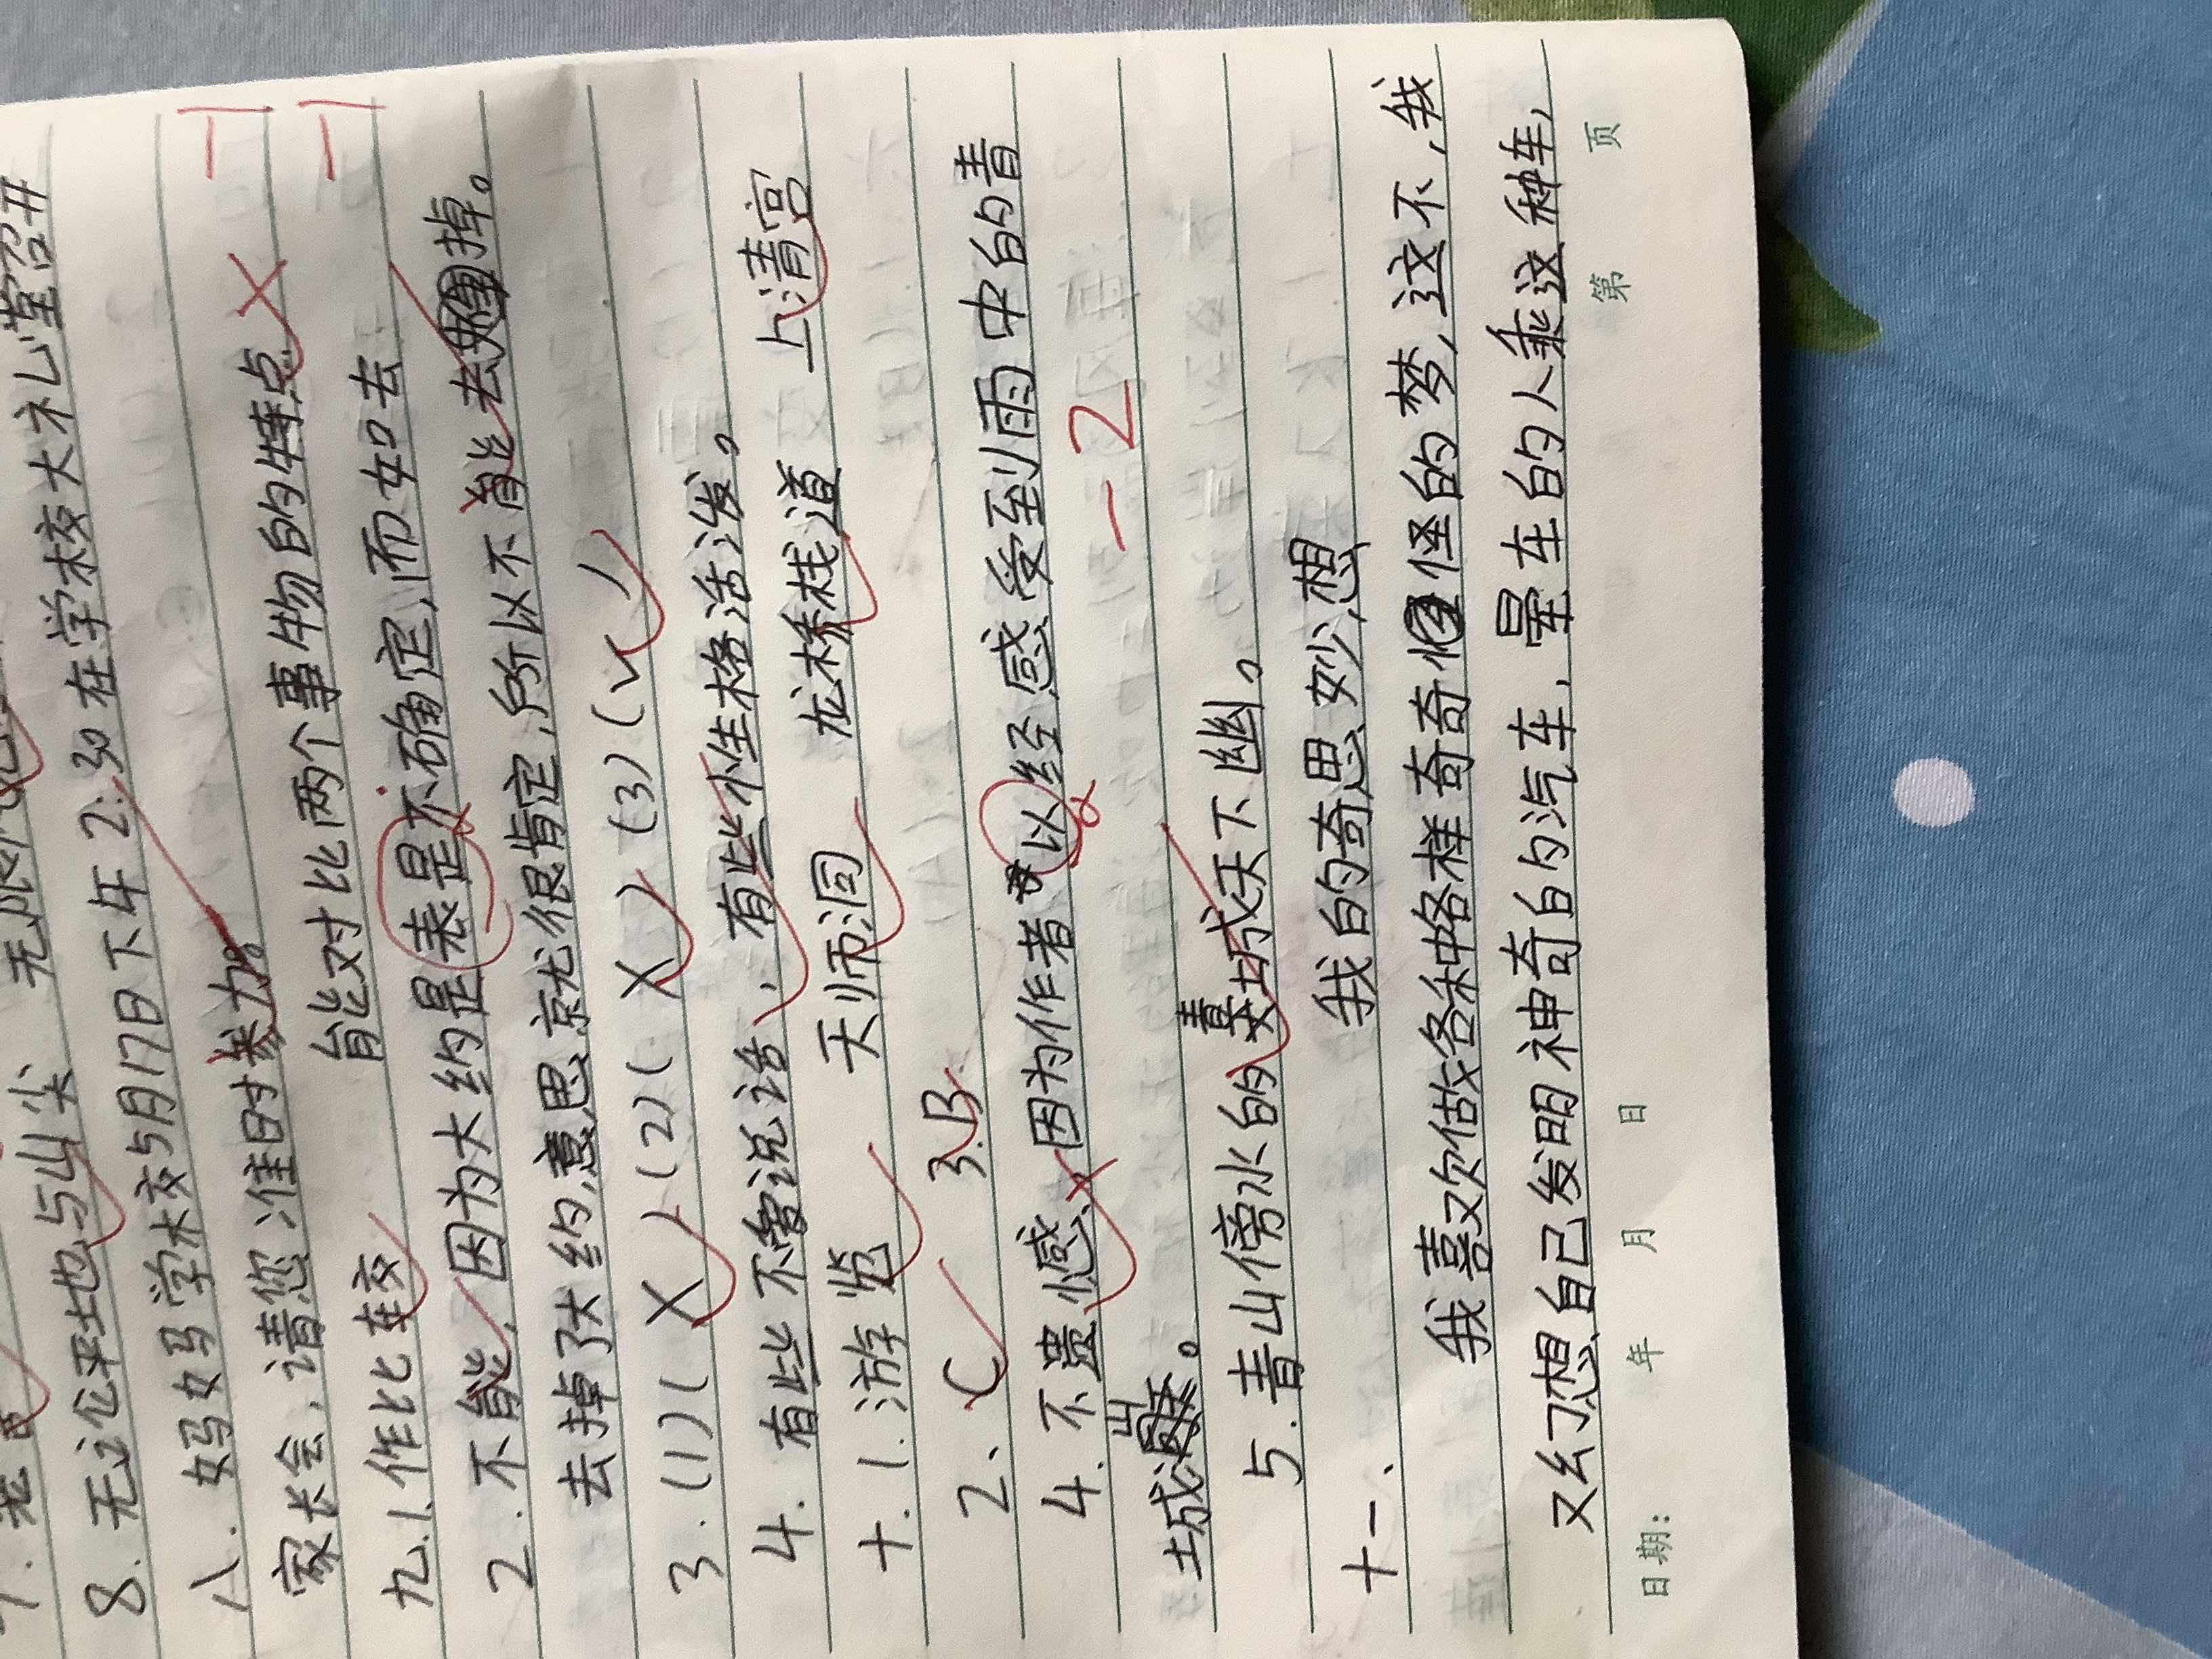 8. 无论平地与山尖 无限
八. 妈妈学校5月17日下午2:30在学校大礼堂召开
家长会,请您准时参加。
九.1.作比较 能对比两个事物的特点
2.不能,因为大约是表是不确定,而如去
去掉了大约,意思就很肯定,所以不能去掉。
3.(1)(X) (2)(X) (3)(√)
4.有些不管说话、有些小性格活泼。
十.1.游览 天师洞 龙桥栈道 上清宫
2.C 3.B
4.不遗憾,因为作者以经感受到雨中的青
城山。
5.青山傍水的青城天下幽。
十一. 我的奇思妙想
我喜欢做各种各样奇奇怪怪的梦,这不,我
又幻想自己发明神奇的汽车,晕车的人乘这种车,
日期: 年 月 日 第 页
-1
-1
-2